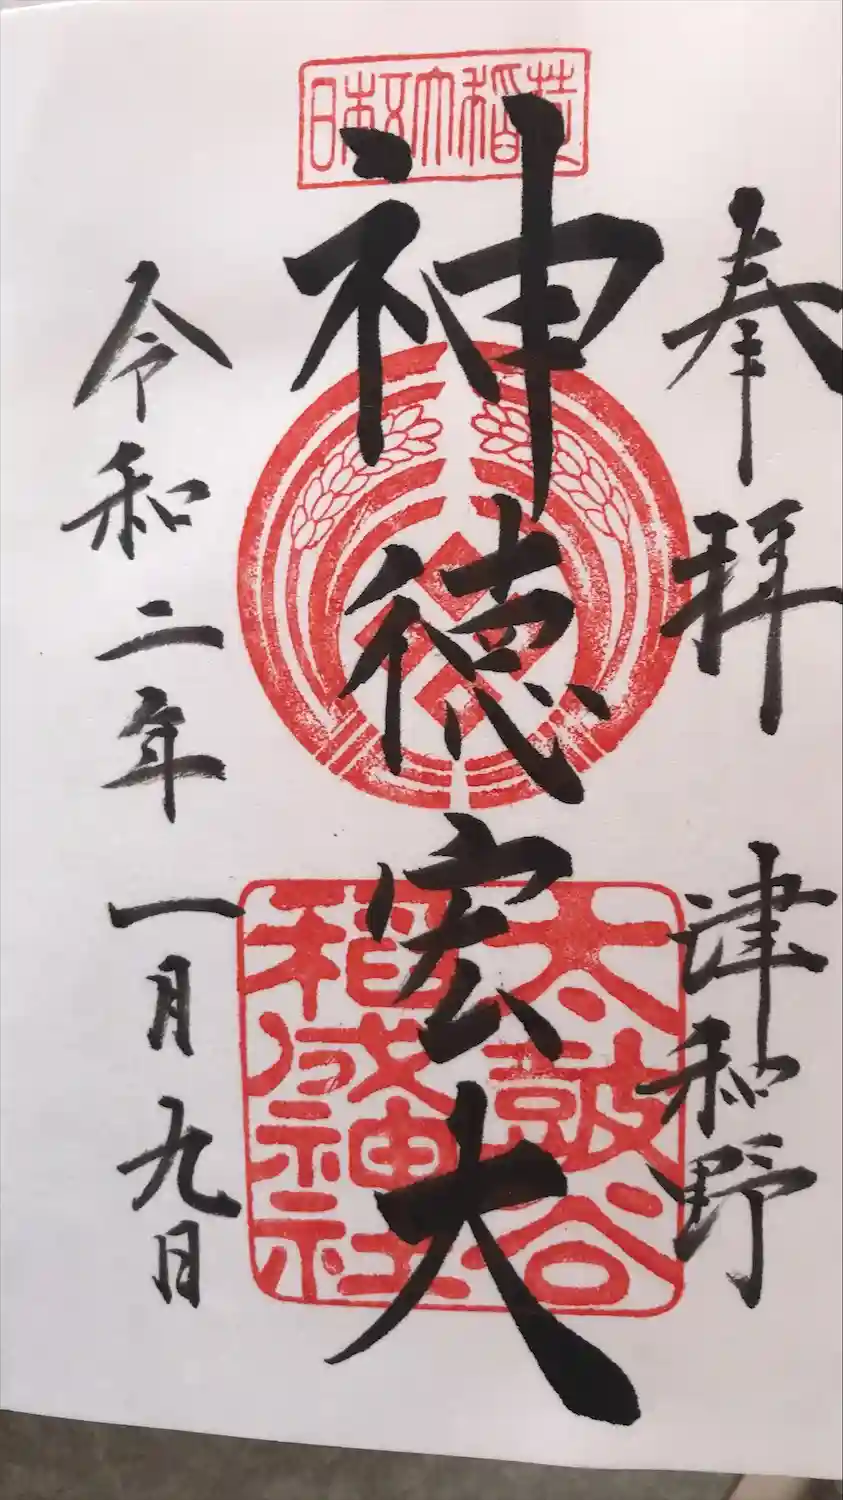 奉拝 津和野
日本五大稲荷
神徳宏大
太皷谷
稲成神社
令和二年一月九日